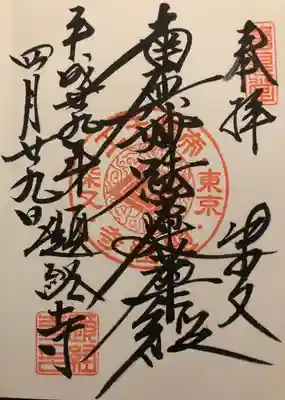 奉拝
柴又
南無妙法蓮華経
平成廿九年
四月廿九日
題経寺
東京
柴又